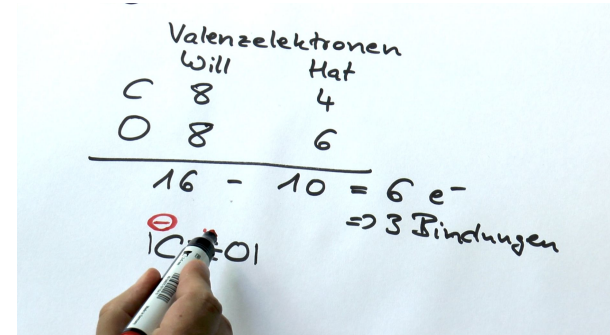 Valenzelektronen
Will Hat
C 8 4
O 8 6
16 - 10 = 6 e⁻
=> 3 Bindungen
⊖
|C≡O|